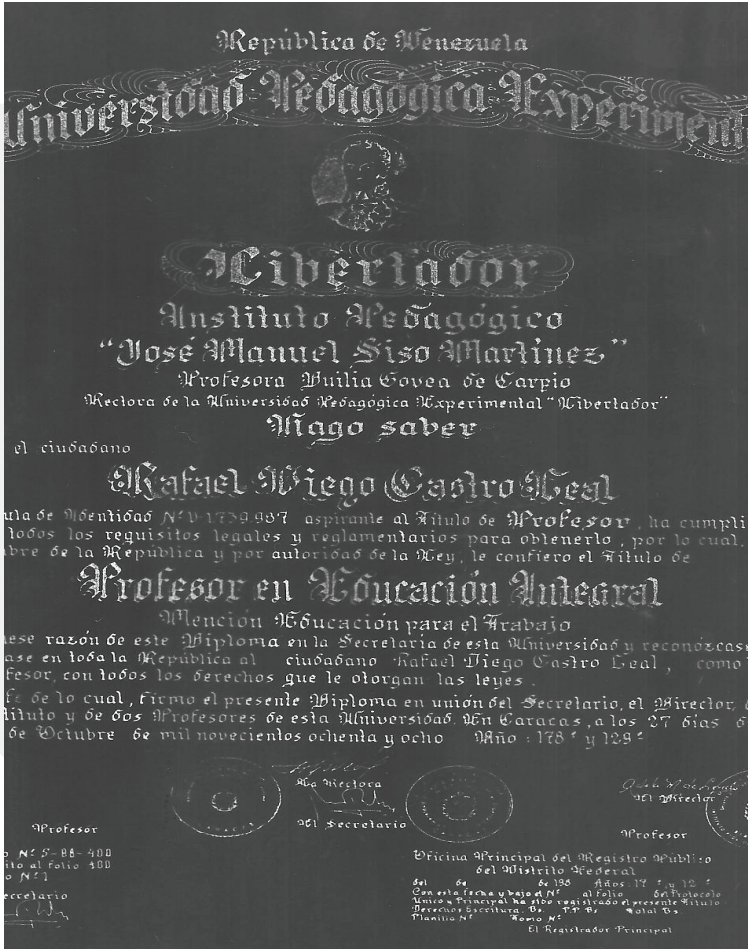 República de Venezuela
Universidad Pedagógica Experiment
Libertador
Instituto Pedagógico
"José Manuel Siso Martínez"
Profesora Duilia Govea de Carpio
Rectora de la Universidad Pedagógica Experimental "Libertador"
Hago saber
el ciudadano
Rafael Diego Castro Leal
ula de Identidad Nº V-1.739.987 aspirante al Título de Profesor, ha cumpli
todos los requisitos legales y reglamentarios para obtenerlo, por lo cual,
bre de la República y por autoridad de la Ley, le confiero el Título de
Profesor en Educación Integral
Mención Educación para el Trabajo
ese razón de este Diploma en la Secretaría de esta Universidad y reconózcas
ase en toda la República al ciudadano Rafael Diego Castro Leal, como
fesor, con todos los derechos que le otorgan las leyes.
fe de lo cual, firmo el presente Diploma en unión del Secretario, el Director,
tituto y de dos Profesores de esta Universidad. En Caracas, a los 27 días d
de Octubre de mil novecientos ochenta y ocho Año: 178º y 129º
La Rectora
El Director
El Secretario
Profesor
Profesor
o Nº 5-88-400
ito al folio 100
o Nº 1
ecretario
Oficina Principal del Registro Público
del Distrito Federal
del de de 198 Años 17 º y 12 º
Con esta fecha y bajo el Nº al Folio del Protocolo
Único y Principal ha sido registrado el presente Título
Derechos Escritura. Bs. P.P. Bs Total Bs
Planilla Nº Tomo Nº
El Registrador Principal